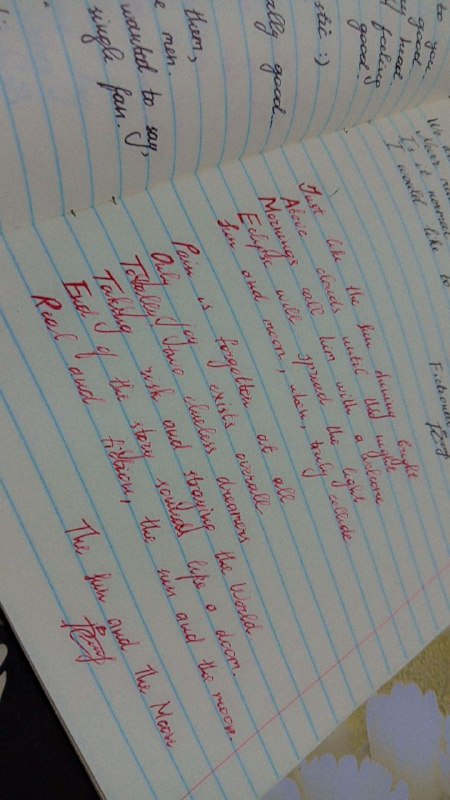 to
you
good
head
feeling
good.
stic :)
ally good...
them,
e men.
wanted to say,
single fan.
We
Is it normal
I would like to
Just like the Sun shining bright
Above clouds until the night
Mornings call him with a welcome
Eclipse will spread the light
Sun and moon, when, truly collide
Pain is forgotten at all
Only joy exists overall
Totally, some clueless dreamers
Talking risk and straying the World
End of the story sounds life o doom.
Real and fiction, the sun and the moon.
The Sun and The Moon